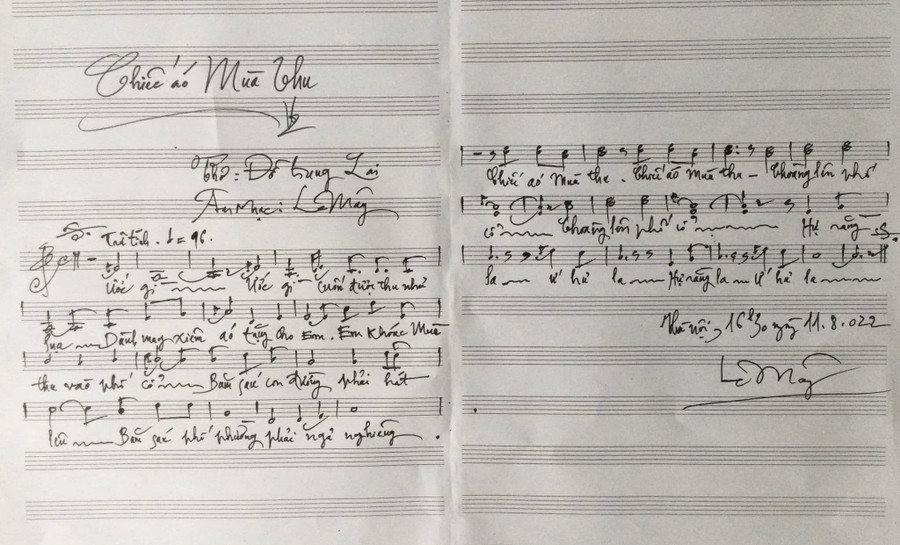 Chiếc áo Mùa thu
Thơ: Đỗ trung Lai
Âm nhạc: Lê Mây
Trữ tình. = 96.
Ước gì Ước gì Cuốn được thu như
lụa Dành may xiêm áo tặng cho Em. Em Khoác Mùa
thu vào phố cổ Bầm sau con đường phải hát
lên phố phường phải ngả nghiêng
Chiếc áo Mùa thu. Chiếc áo Mùa thu Choàng lên phố
cổ Choàng lên phố cổ Hự rằng
la ừ hự la Hự rằng la ừ hự la
Hà nội, 16h30 ngày 11.8.022
Lê Mây